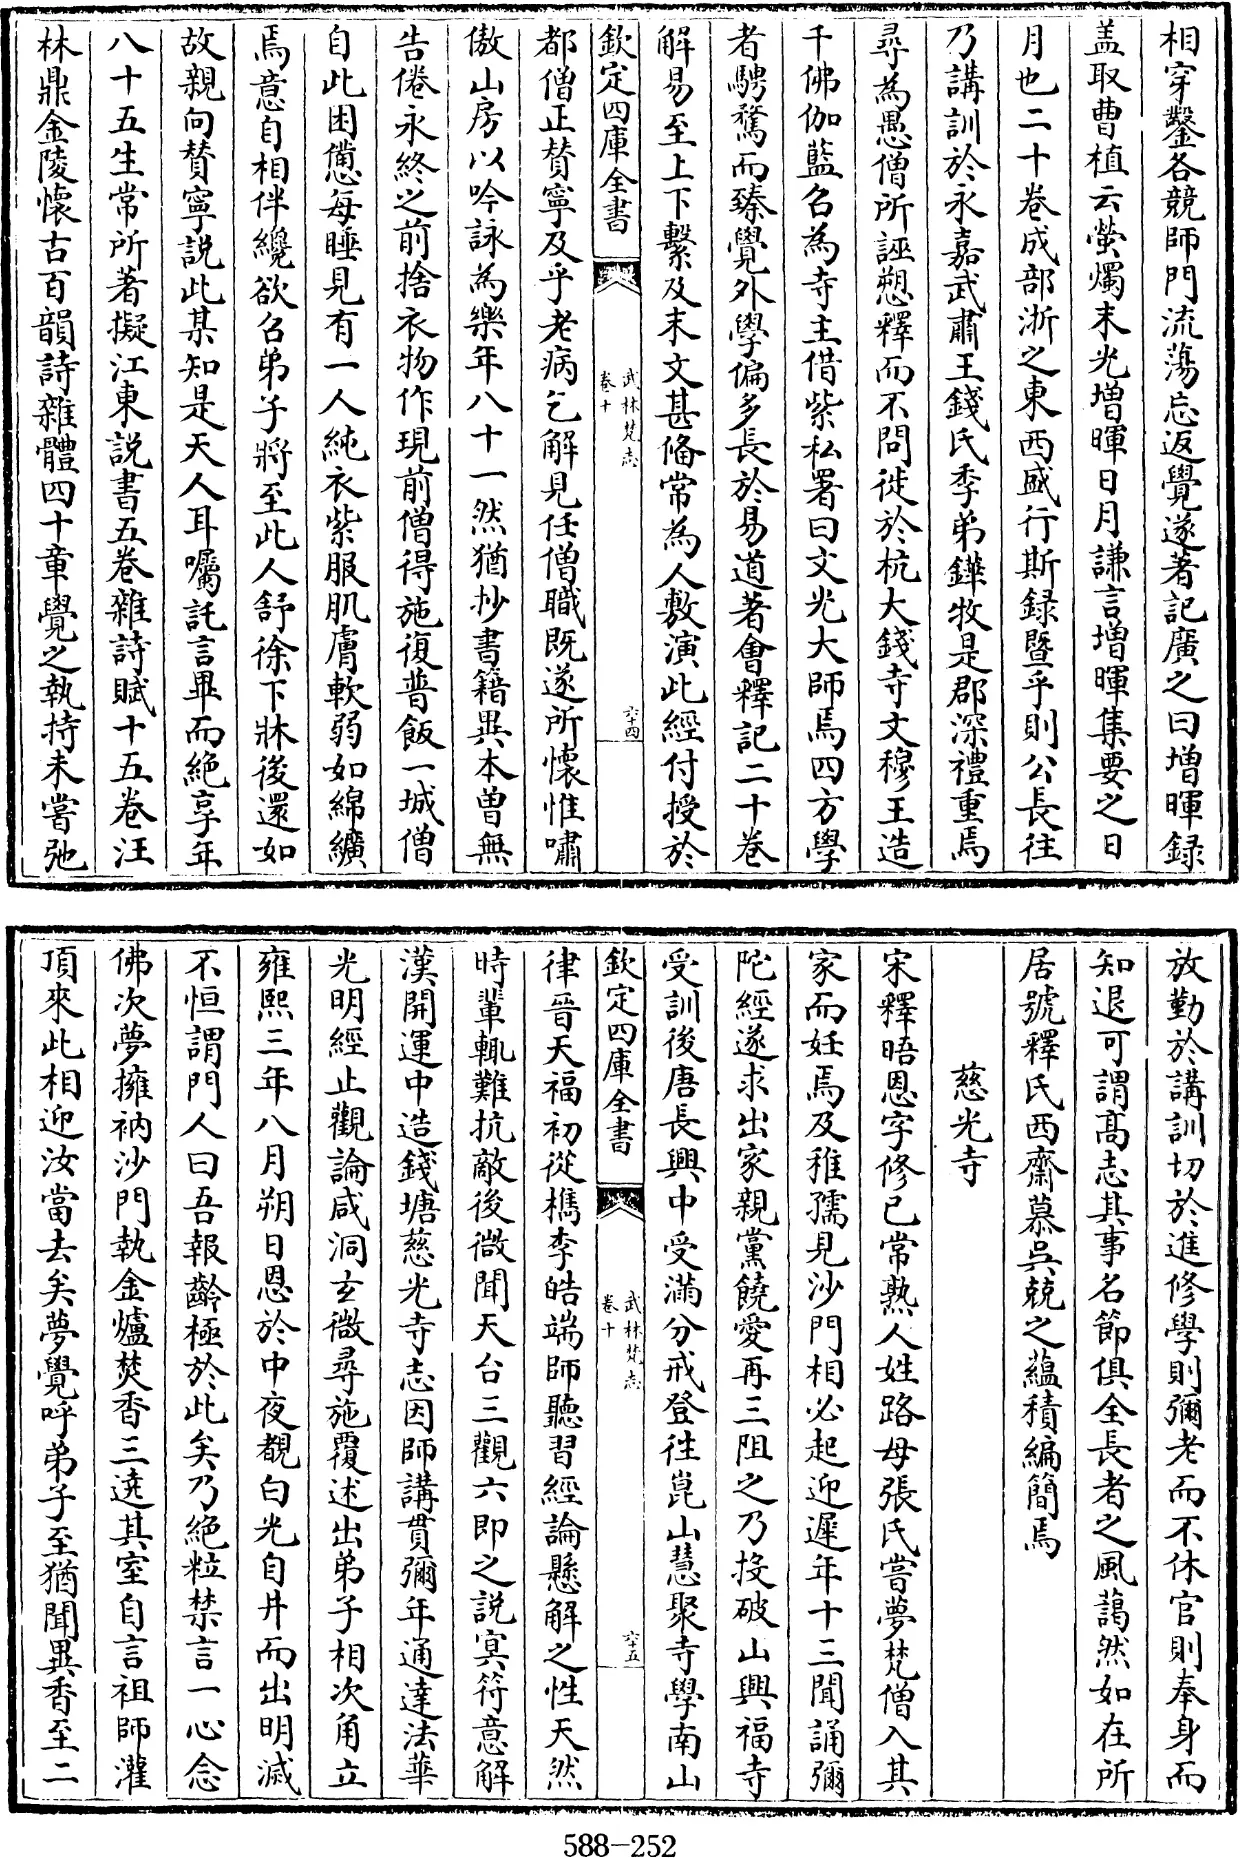 相穿鑿各競師門流蕩忘返覺遂著記廣之曰增暉録
盖取曹植云螢燭末光增暉日月謙言增暉集要之日
月也二十卷成部浙之東西盛行斯録暨乎則公長往
乃講訓於永嘉武肅王錢氏季弟鏵牧是郡深禮重焉
尋為愚僧所誣愬釋而不問徙於杭大錢寺文穆王造
千佛伽藍名為寺主借紫私署曰文光大師焉四方學
者騁騖而臻覺外學偏多長於易道著會釋記二十卷
解易至上下繫及末文甚俻常為人敷演此經付授於
欽定四庫全書
武林梵志
卷十
六十四
都僧正贊寧及乎老病乞解見任僧職既遂所懷惟嘯
傲山房以吟詠為樂年八十一然猶抄書籍異本曾無
告倦永終之前捨衣物作現前僧得施復普飯一城僧
自此困憊每睡見有一人純衣紫服肌膚軟弱如綿纊
焉意自相伴纔欲召弟子將至此人舒徐下牀後還如
故親向贊寧説此某知是天人耳囑託言畢而絶享年
八十五生常所著擬江東説書五卷雜詩賦十五卷汪
林鼎金陵懷古百韻詩雜體四十章覺之執持未嘗弛
放勤於講訓切於進修學則彌老而不休官則奉身而
知退可謂高志其事名節俱全長者之風藹然如在所
居號釋氏西齋慕吳兢之藴積編簡焉
慈光寺
宋釋晤恩字修已常熟人姓路母張氏嘗夢梵僧入其
家而妊焉及稚孺見沙門相必起迎遲年十三聞誦彌
陀經遂求出家親黨饒愛再三阻之乃投破山興福寺
受訓後唐長興中受滿分戒登往崑山慧聚寺學南山
欽定四庫全書
武林梵志
卷十
六十五
律晉天福初從檇李皓端師聽習經論懸解之性天然
時輩輒難抗敵後微聞天台三觀六即之説冥符意解
漢開運中造錢塘慈光寺志因師講貫彌年通達法華
光明經止觀論咸洞玄微尋施覆述出弟子相次角立
雍熙三年八月朔日恩於中夜覩白光自井而出明滅
不恒謂門人曰吾報齡極於此矣乃絶粒禁言一心念
佛次夢擁衲沙門執金爐焚香三遶其室自言祖師灌
頂來此相迎汝當去矣夢覺呼弟子至猶聞異香至二
588-252